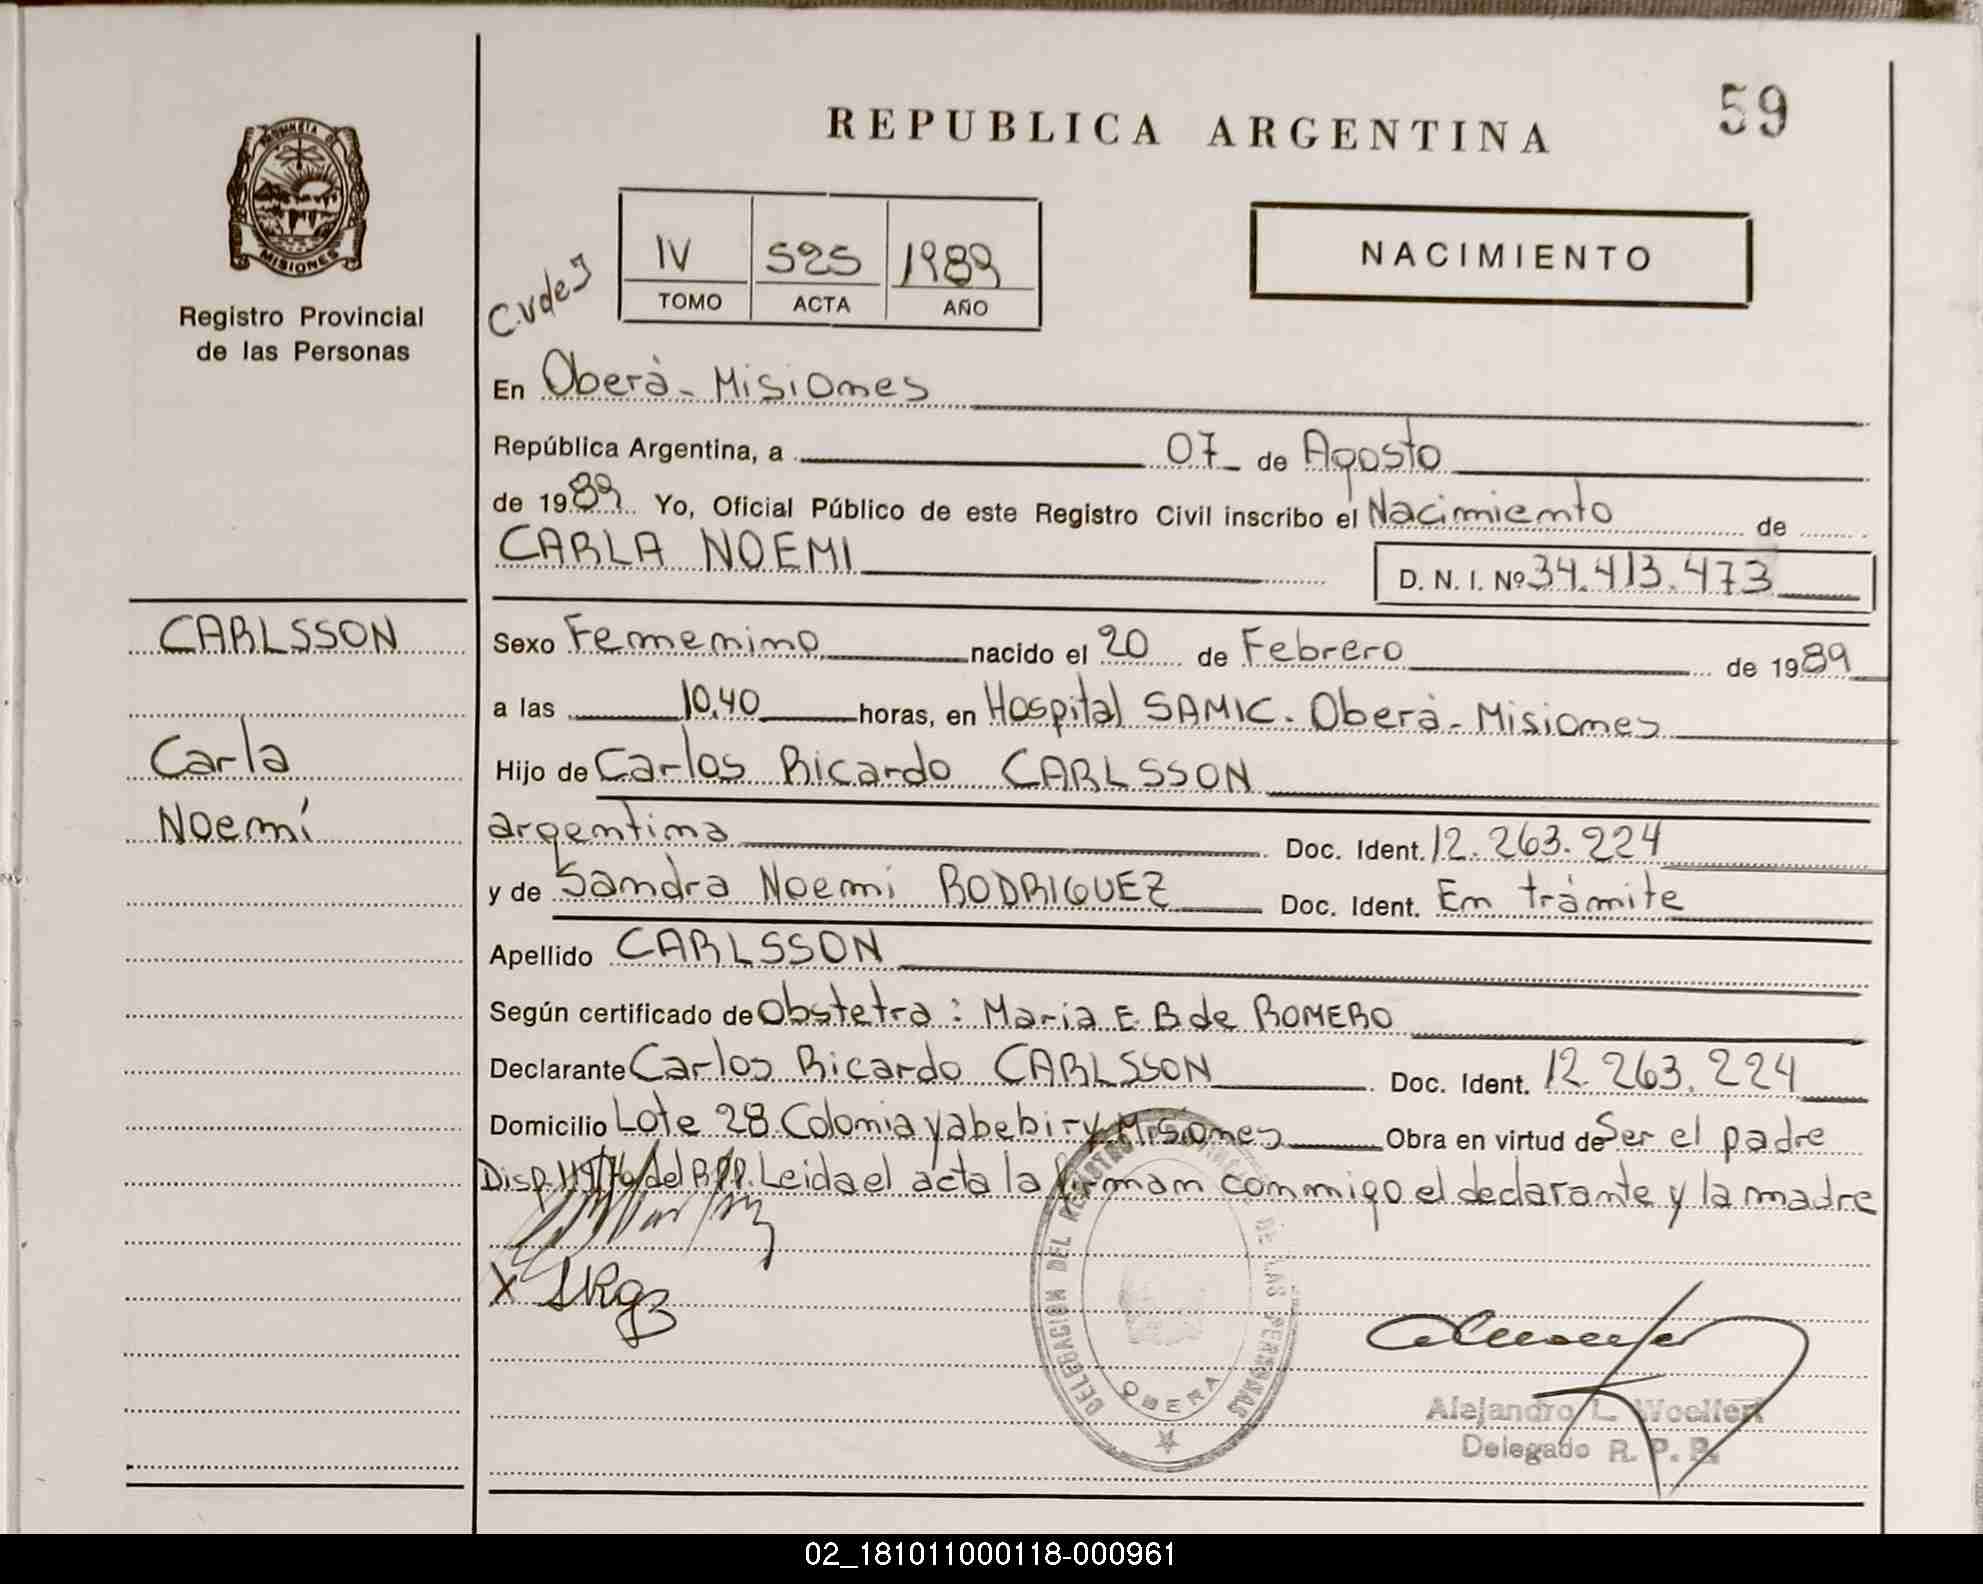 59
REPUBLICA ARGENTINA
PROVINCIA DE
MISIONES
Registro Provincial
de las Personas
IV 525 1989
TOMO ACTA AÑO
NACIMIENTO
En Oberá - Misiones
República Argentina, a 07 de Agosto
de 1989 Yo, Oficial Público de este Registro Civil inscribo el Nacimiento de
CARLA NOEMI D. N. I. Nº 34.413.473
CARLSSON
Carla
Noemí
Sexo Femenino nacido el 20 de Febrero de 1989
a las 10,40 horas, en Hospital SAMIC. Oberá - Misiones
Hijo de Carlos Ricardo CARLSSON
argentina Doc. Ident. 12.263.224
y de Sandra Noemi RODRIGUEZ Doc. Ident. En trámite
Apellido CARLSSON
Según certificado de Obstetra: Maria E. B de ROMERO
Declarante Carlos Ricardo CARLSSON Doc. Ident. 12.263.224
Domicilio Lote 28 Colonia yabebiry Misiones Obra en virtud de Ser el padre
Disp. del R.P.P. Leida el acta la firman conmigo el declarante y la madre
X SRgz
DELEGACION DEL REGISTRO PROVINCIAL DE LAS PERSONAS
OBERA
Alejandro L. Woelfert
Delegado R. P. P.
02_181011000118-000961